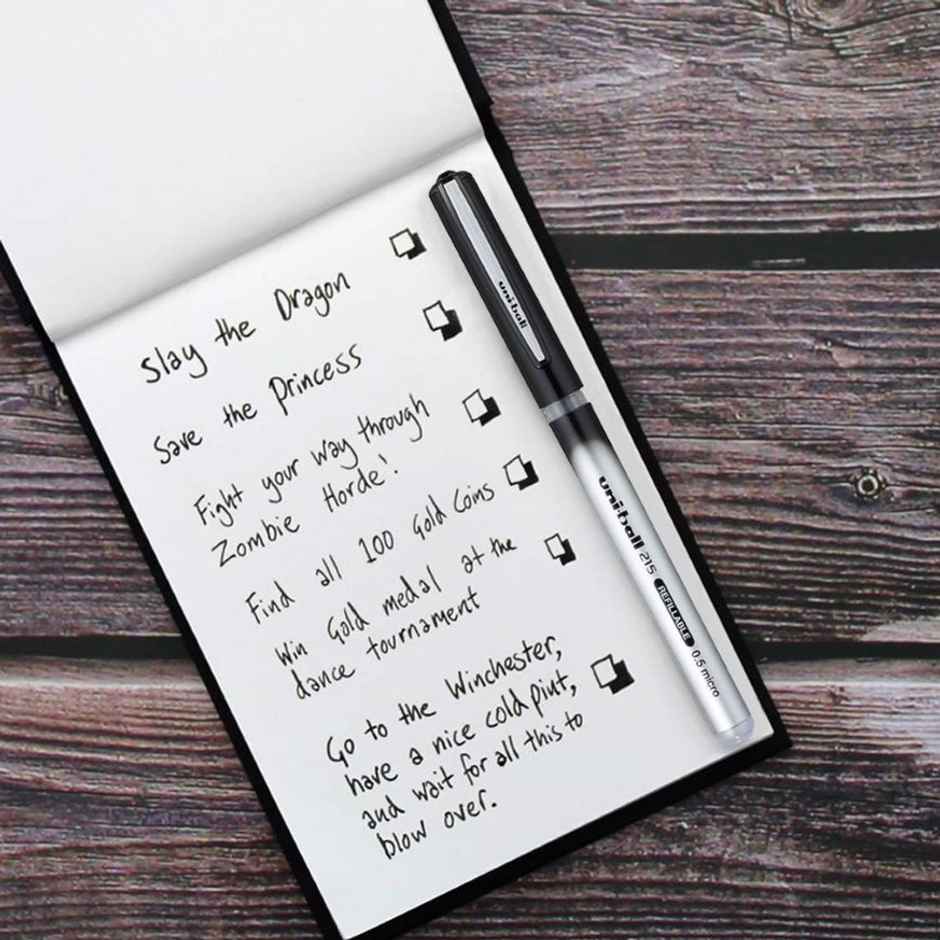 Slay the Dragon
Save the Princess
Fight your way through
Zombie Horde!
Find all 100 Gold Coins
Win Gold medal at the
dance tournament
Go to the Winchester,
have a nice cold pint,
and wait for all this to
blow over.
uni-ball
uni-ball 215 REFILLABLE 0.5 micro